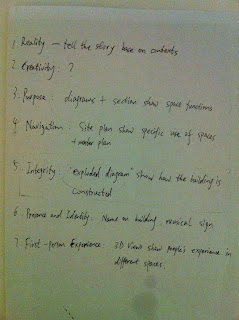 1. Reality — tell the story base on contents
2. Creativity: ?
3. Purpose: diagrams + section show space functions
4. Navigation: Site plan show specific use of spaces
+ master plan
5. Integrity: "exploded diagram" show how the building is
constructed
6. Presence and Identity: Name on building, musical sign
7. First-person Experience: 3D views show people's experience in
different spaces.